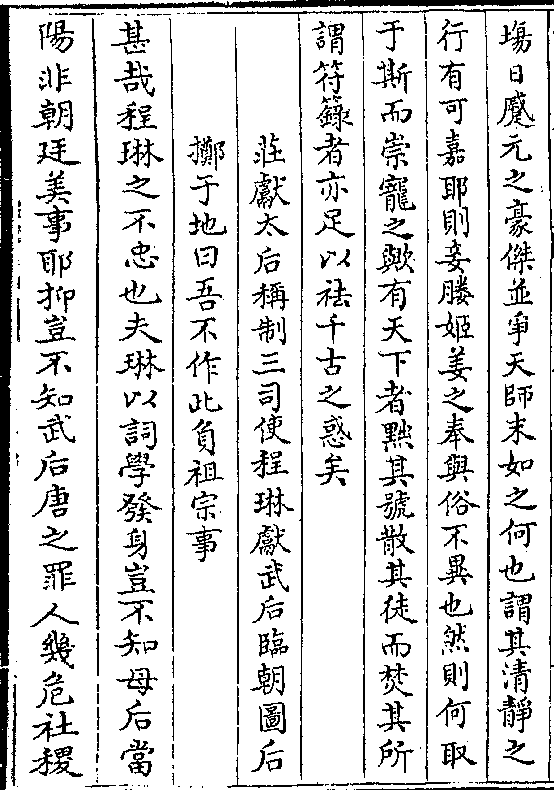 塲日蹙元之豪傑並爭天師末如之何也謂其清靜之
行有可嘉耶則妾媵姬姜之奉與俗不異也然則何取
于斯而崇寵之歟有天下者黜其號散其徒而焚其所
謂符籙者亦足以祛千古之惑矣
莊獻太后稱制三司使程琳獻武后臨朝圖后
擲于地曰吾不作此負祖宗事
甚哉程琳之不忠也夫琳以詞學發身豈不知母后當
陽非朝廷美事耶抑豈不知武后唐之罪人幾危社稷